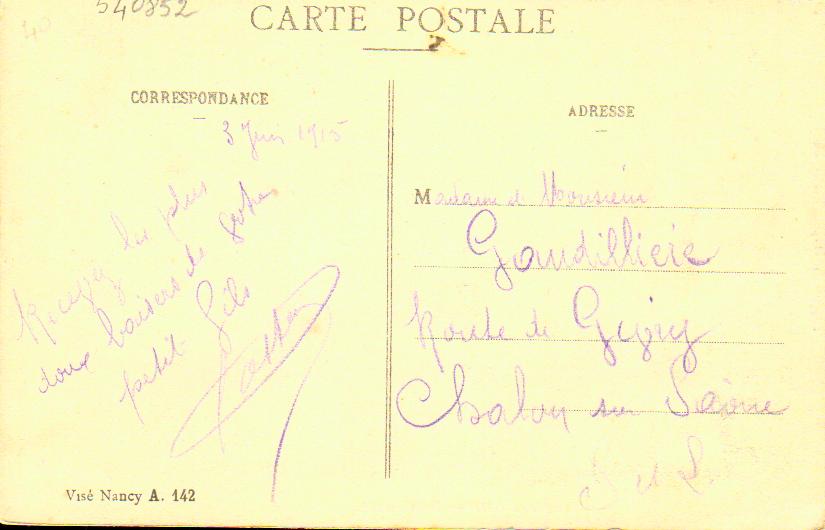 540852
CARTE POSTALE
CORRESPONDANCE
3 Juin 1915
Recevez les plus
doux baisers de votre
petit fils
Visé Nancy A. 142
ADRESSE
Madame et Monsieur
Gaudilliere
Route de Givry
Chalon sur Saône
S et L.